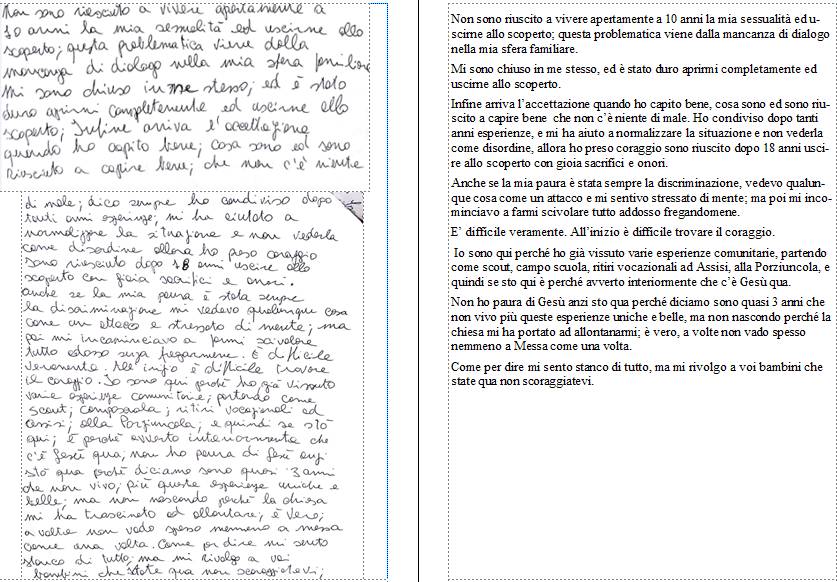 Non sono riuscito a vivere apertamente a
10 anni la mia sessualità ed uscirne allo
scoperto; questa problematica viene dalla
mancanza di dialogo nella mia sfera familiare
Mi sono chiuso in me stesso; ed è stato
duro aprirmi completamente ed uscirne allo
scoperto; Infine arriva l'accettazione
quando ho capito bene; cosa sono ed sono
riuscito a capire bene; che non c'è niente
di male; dico sempre ho condiviso dopo
tanti anni esperienze; mi ha aiutato a
normalizzare la situazione e non vederla
come disordine allora ho preso coraggio
sono riuscito dopo 18 anni uscire allo
scoperto con gioia sacrifici e onori.
Anche se la mia paura è stata sempre
la discriminazione mi vedevo qualunque cosa
come un attacco e stressato di mente; ma
poi mi incominciavo a farmi scivolare
tutto adosso senza fregarmene. È difficile
veramente. All'inizio è difficile trovare
il coraggio. Io sono qui perché ho già vissuto
varie esperienze comunitarie; partendo come
scout; camposcuola; ritiri vocazionali ad
Assisi; alla Porziuncola; e quindi se stò
qui; è perché avverto interiormente che
c'è Gesù qua; non ho paura di Gesù anzi
stò qua perché diciamo sono quasi 3 anni
che non vivo; più queste esperienze uniche e
belle; ma non nascondo perché la chiesa
mi ha trascinato ed allontare; è vero;
a volte non vado spesso nemmeno a messa
come una volta. Come per dire mi sento
stanco di tutto; ma mi rivolgo a voi
bambini che state qua non scoraggiatevi;
Non sono riuscito a vivere apertamente a 10 anni la mia sessualità ed u-
scirne allo scoperto; questa problematica viene dalla mancanza di dialogo
nella mia sfera familiare.
Mi sono chiuso in me stesso, ed è stato duro aprirmi completamente ed
uscirne allo scoperto.
Infine arriva l’accettazione quando ho capito bene, cosa sono ed sono riu-
scito a capire bene  che non c’è niente di male. Ho condiviso dopo tanti
anni esperienze, e mi ha aiuto a normalizzare la situazione e non vederla
come disordine, allora ho preso coraggio sono riuscito dopo 18 anni usci-
re allo scoperto con gioia sacrifici e onori.
Anche se la mia paura è stata sempre la discriminazione, vedevo qualun-
que cosa come un attacco e mi sentivo stressato di mente; ma poi mi inco-
minciavo a farmi scivolare tutto addosso fregandomene.
E’ difficile veramente. All’inizio è difficile trovare il coraggio.
Io sono qui perché ho già vissuto varie esperienze comunitarie, partendo
come scout, campo scuola, ritiri vocazionali ad Assisi, alla Porziuncola, e
quindi se sto qui è perché avverto interiormente che c’è Gesù qua.
Non ho paura di Gesù anzi sto qua perché diciamo sono quasi 3 anni che
non vivo più queste esperienze uniche e belle, ma non nascondo perché la
chiesa mi ha portato ad allontanarmi; è vero, a volte non vado spesso
nemmeno a Messa come una volta.
Come per dire mi sento stanco di tutto, ma mi rivolgo a voi bambini che
state qua non scoraggiatevi.